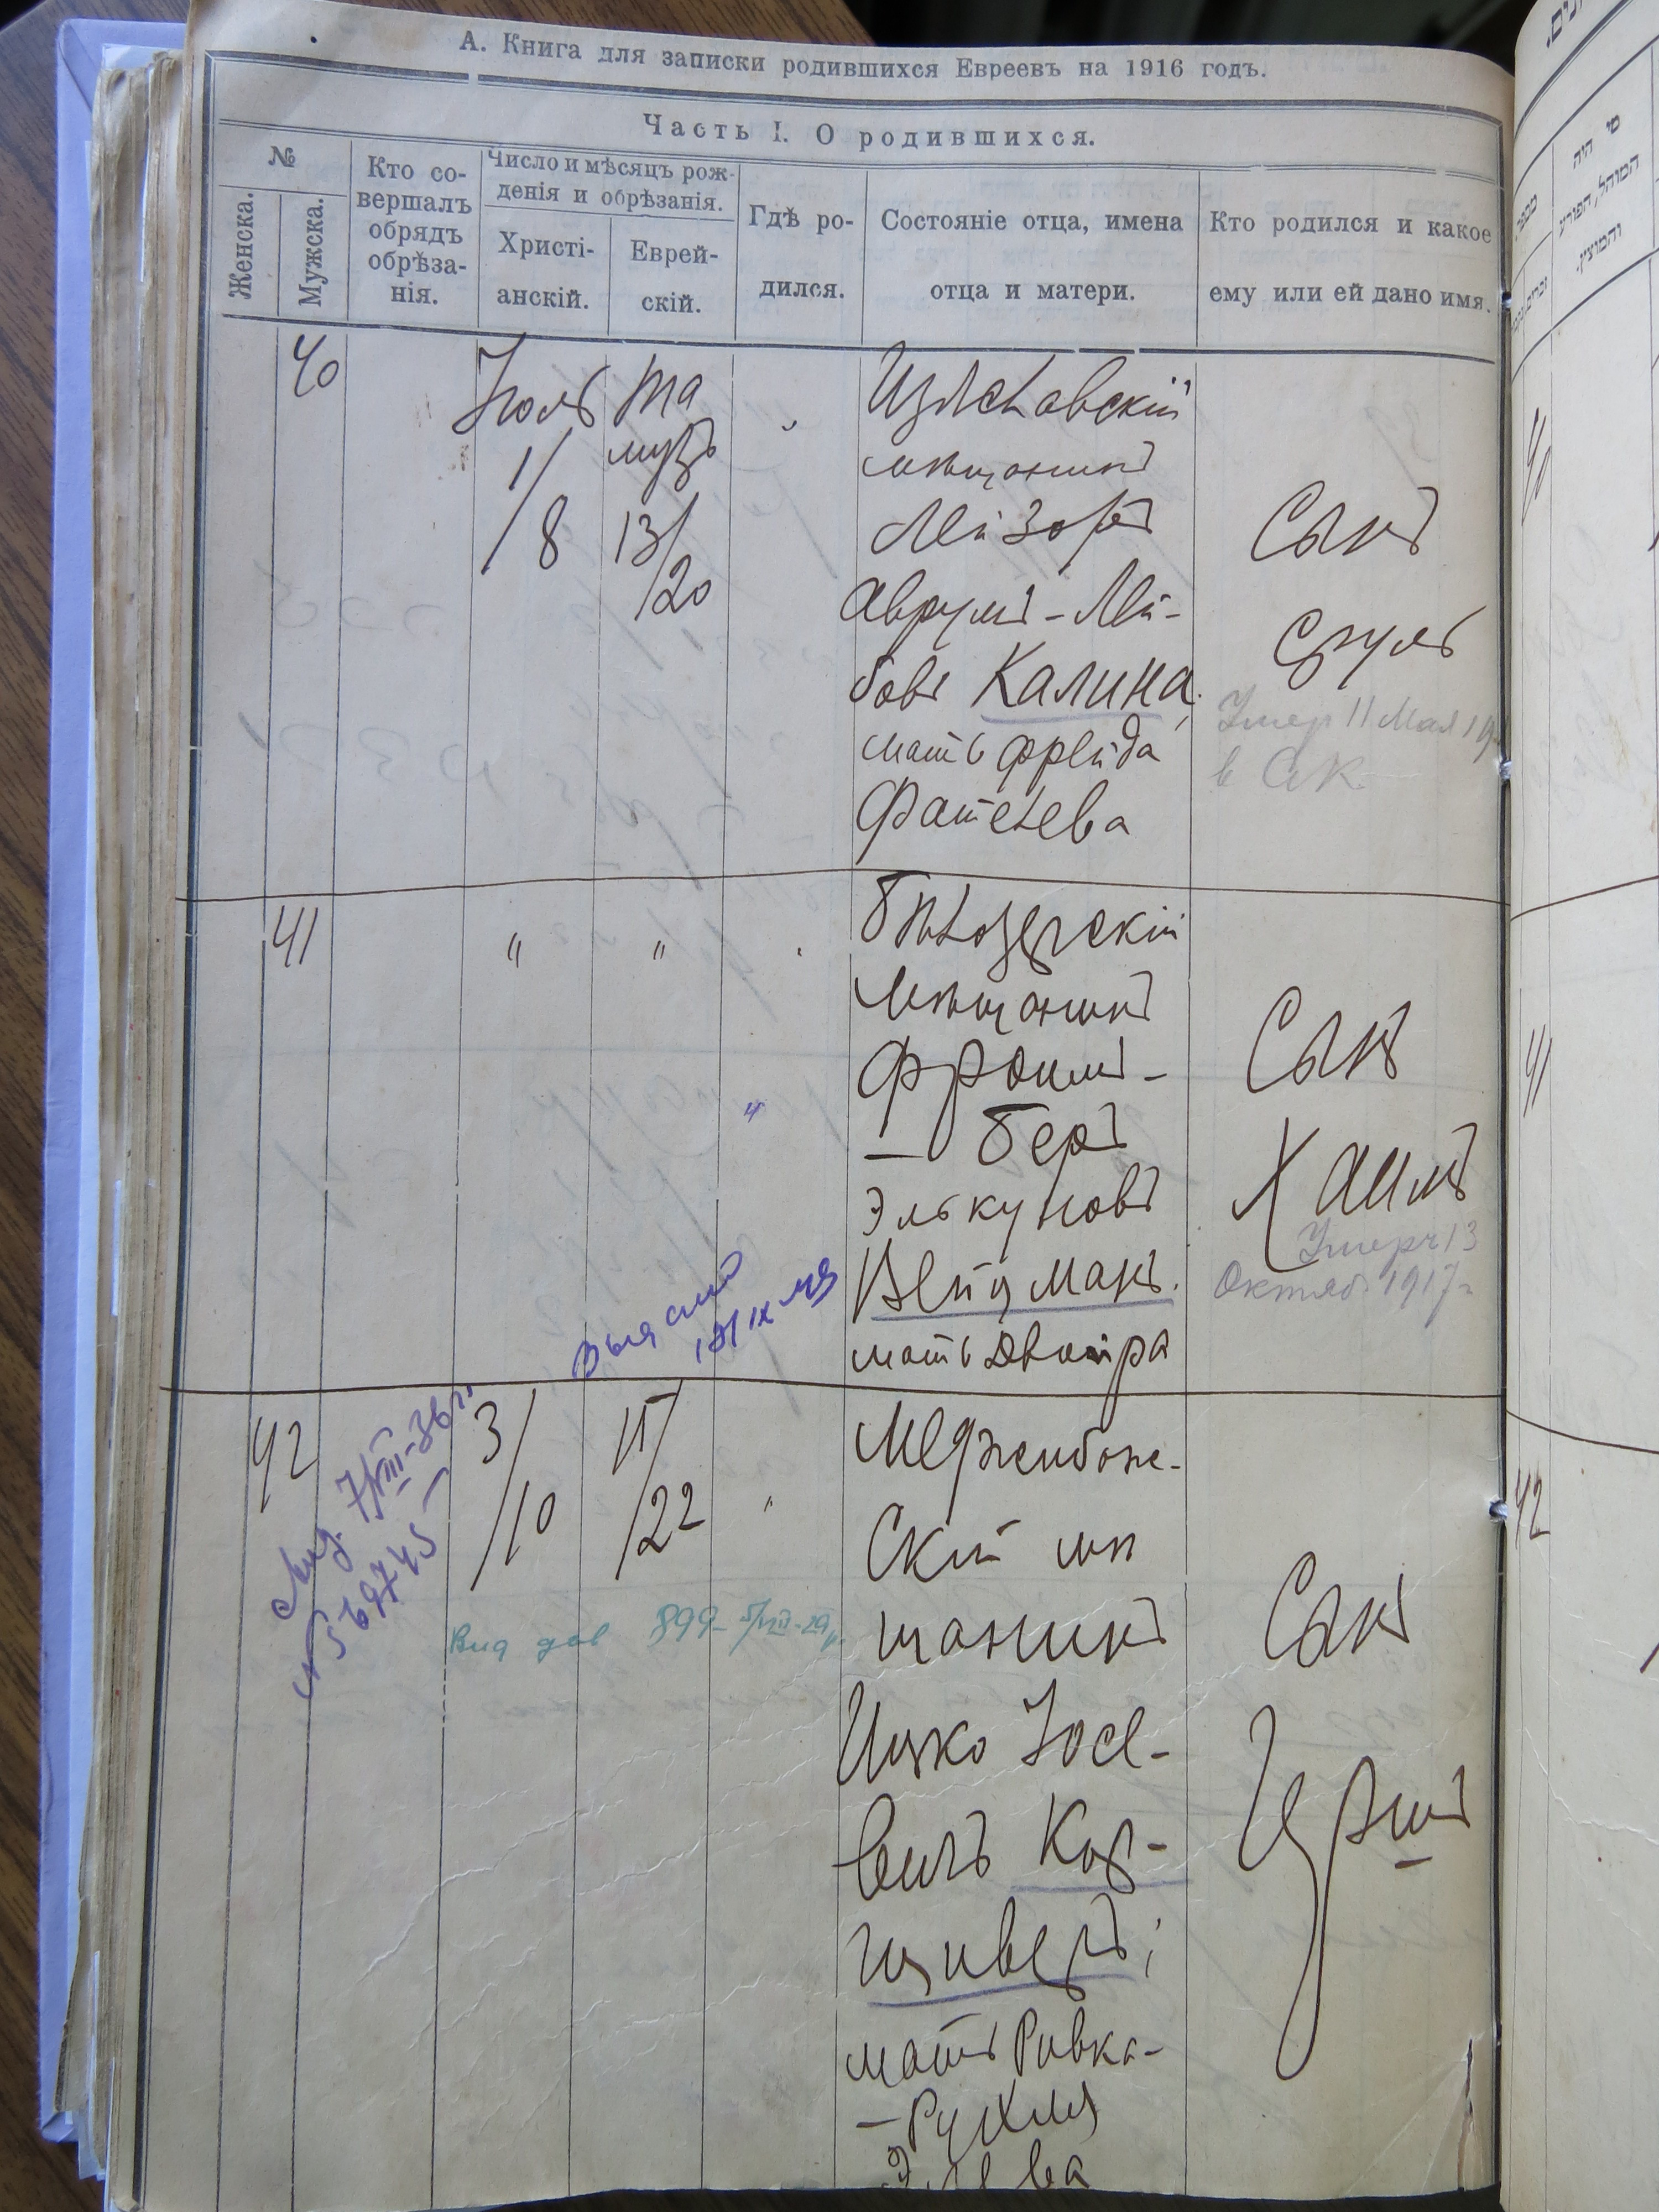 А. Книга для записки родившихся Евреевъ на 1916 годъ.
Часть I. О родившихся.
№
Женска.
Мужска.
Кто со-
вершалъ
обрядъ
обрѣза-
нія.
Число и мѣсяцъ рож-
денія и обрѣзанія.
Христі-
анскій.
Еврей-
скій.
Гдѣ ро-
дился.
Состояніе отца, имена
отца и матери.
Кто родился и какое
ему или ей дано имя.
40
Іюль
1/
/8
Та
музъ
13/
/20
Изяславскій
мѣщанинъ
Лейзоръ
Аврумъ-Лей-
бовъ Калина,
мать Фрейда
Сынъ
Сруль
Умер 11 Мая
41
"
"
"
Бѣлозерскій
мѣщанинъ
Фроимъ-
- Беръ
Элькуновъ
Вейцманъ.
мать Двойра
Сынъ
Хаимъ
Умеръ 13
Октяб. 1917 г.
42
3/
/10
15/
/22
"
Меджибож-
скій мѣ
щанинъ
Ицко Іосе-
вичъ Кор-
мать Ривка-
- Рухля
Сынъ
899
569745
מי היה
המוהל, הפורע
והמוצץ.
40
41
42